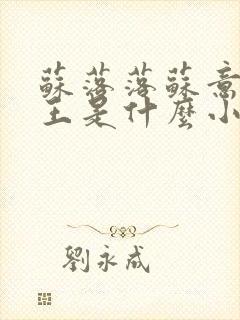 蘇落落蘇意
王是什麼小
劉永成